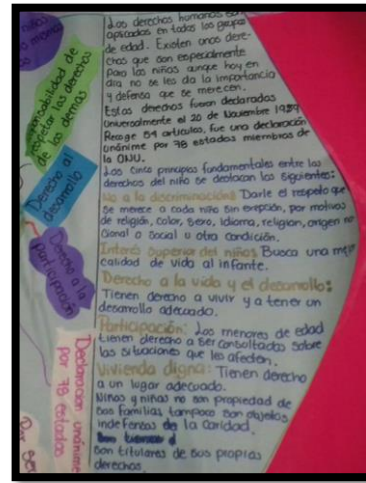 Los derechos humanos son
aplicados en todos los grupos
de edad. Existen unos dere-
chos que son especialmente
para los niños aunque hoy en
dia no se les da la importancia
y defensa que se merecen.
Estos derechos fueron declarados
universalmente el 20 de Noviembre 1989
Recoge 54 artículos, fue una declaración
unánime por 78 estados miembros de
la ONU.
Los cinco principios fundamentales entre los
derechos del niño se destacan los siguientes:
No a la discriminación: Darle el respeto que
se merece a cada niño sin erepción, por motivos
de religión, color, sexo, idioma, religion, origen na
cional o social u otra condición.
Interés superior del niño: Busca una mejor
calidad de vida al infante.
Derecho a la vida y el desarrollo:
Tienen derecho a vivir y a tener un
desarrollo adecuado.
Participación: Los menores de edad
tienen derecho a ser consultados sobre
las situaciones que les afecten.
Vivienda digna: Tienen derecho
a un lugar adecuado.
Niños y niñas no son propiedad de
sus familias tampoco son objetos
indefensos de la caridad.
son titulares de sus propios
derechos.
niños
responsabilidad de
respetar los derechos
de los demas
Derecho al
desarrollo
Derecho a la
participación
Declaracion unánime
por 78 estados
Por ser